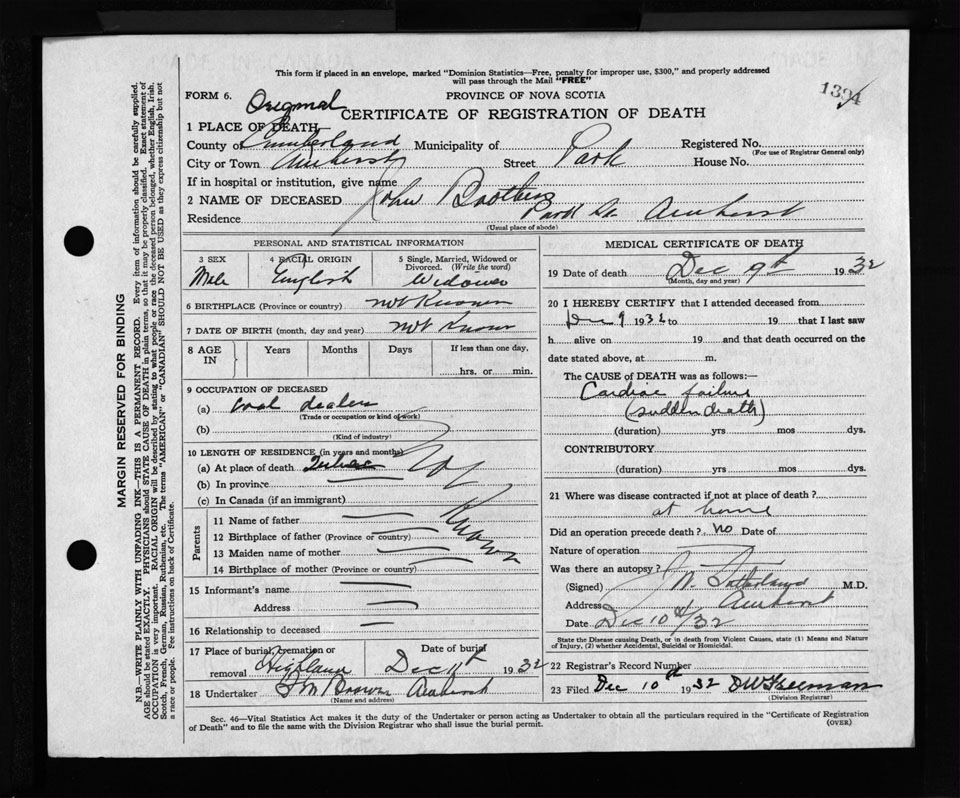 This form if placed in an envelope, marked "Dominion Statistics—Free, penalty for improper use, $300," and properly addressed
will pass through the Mail "FREE"
FORM 6. PROVINCE OF NOVA SCOTIA
1394
Original
CERTIFICATE OF REGISTRATION OF DEATH
1 PLACE OF DEATH
County of Cumberland Municipality of Registered No.
(For use of Registrar General only)
City or Town Amherst Street Park House No.
If in hospital or institution, give name
2 NAME OF DECEASED John
Residence Park St. Amherst
(Usual place of abode)
PERSONAL AND STATISTICAL INFORMATION
3 SEX 4 RACIAL ORIGIN 5 Single, Married, Widowed or
Divorced. (Write the word)
Male English Widower
6 BIRTHPLACE (Province or country) not Known
7 DATE OF BIRTH (month, day and year) not Know
8 AGE IN Years Months Days If less than one day,
hrs. or min.
9 OCCUPATION OF DECEASED
(a) coal dealer
(Trade or occupation or kind of work)
(b)
(Kind of industry)
10 LENGTH OF RESIDENCE (in years and months)
(a) At place of death
(b) In province not
(c) In Canada (if an immigrant)
Known
Parents
11 Name of father
12 Birthplace of father (Province or country)
13 Maiden name of mother
14 Birthplace of mother (Province or country)
15 Informant's name
Address
16 Relationship to deceased
17 Place of burial, cremation or Date of burial
removal Highland Dec 11th 1932
18 Undertaker Brown Amherst
(Name and address)
MEDICAL CERTIFICATE OF DEATH
19 Date of death Dec 9th 1932
(Month, day and year)
20 I HEREBY CERTIFY that I attended deceased from
Dec 9 1932 to 19 that I last saw
h alive on 19 and that death occurred on the
date stated above, at m.
The CAUSE OF DEATH was as follows:—
Cardiac failure
(sudden death)
(duration) yrs mos dys.
CONTRIBUTORY
(duration) yrs mos dys.
21 Where was disease contracted if not at place of death?
at home
Did an operation precede death? no Date of
Nature of operation
Was there an autopsy?
(Signed) M.D.
Address Amherst
Date Dec 10th/32
State the Disease causing Death, or in death from Violent Causes, state (1) Means and Nature
of Injury, (2) whether Accidental, Suicidal or Homicidal.
22 Registrar's Record Number
23 Filed Dec 10th 1932 Freeman
(Division Registrar)
Sec. 46—Vital Statistics Act makes it the duty of the Undertaker or person acting as Undertaker to obtain all the particulars required in the "Certificate of Registration
of Death" and to file the same with the Division Registrar who shall issue the burial permit. (OVER)
MARGIN RESERVED FOR BINDING
N.B.—WRITE PLAINLY WITH UNFADING INK—THIS IS A PERMANENT RECORD. Every item of information should be carefully supplied.
AGE should be stated EXACTLY. PHYSICIANS should STATE CAUSE OF DEATH in plain terms, so that it may be properly classified. Exact statement of
OCCUPATION is very important. RACIAL ORIGIN will be described by stating to what people or race the deceased person belonged, whether English, Irish,
Scotch, French, German, Russian, Ruthenian, etc. The terms "AMERICAN" or "CANADIAN" SHOULD NOT BE USED as they express citizenship but not
a race or people. Fee instructions on back of Certificate.